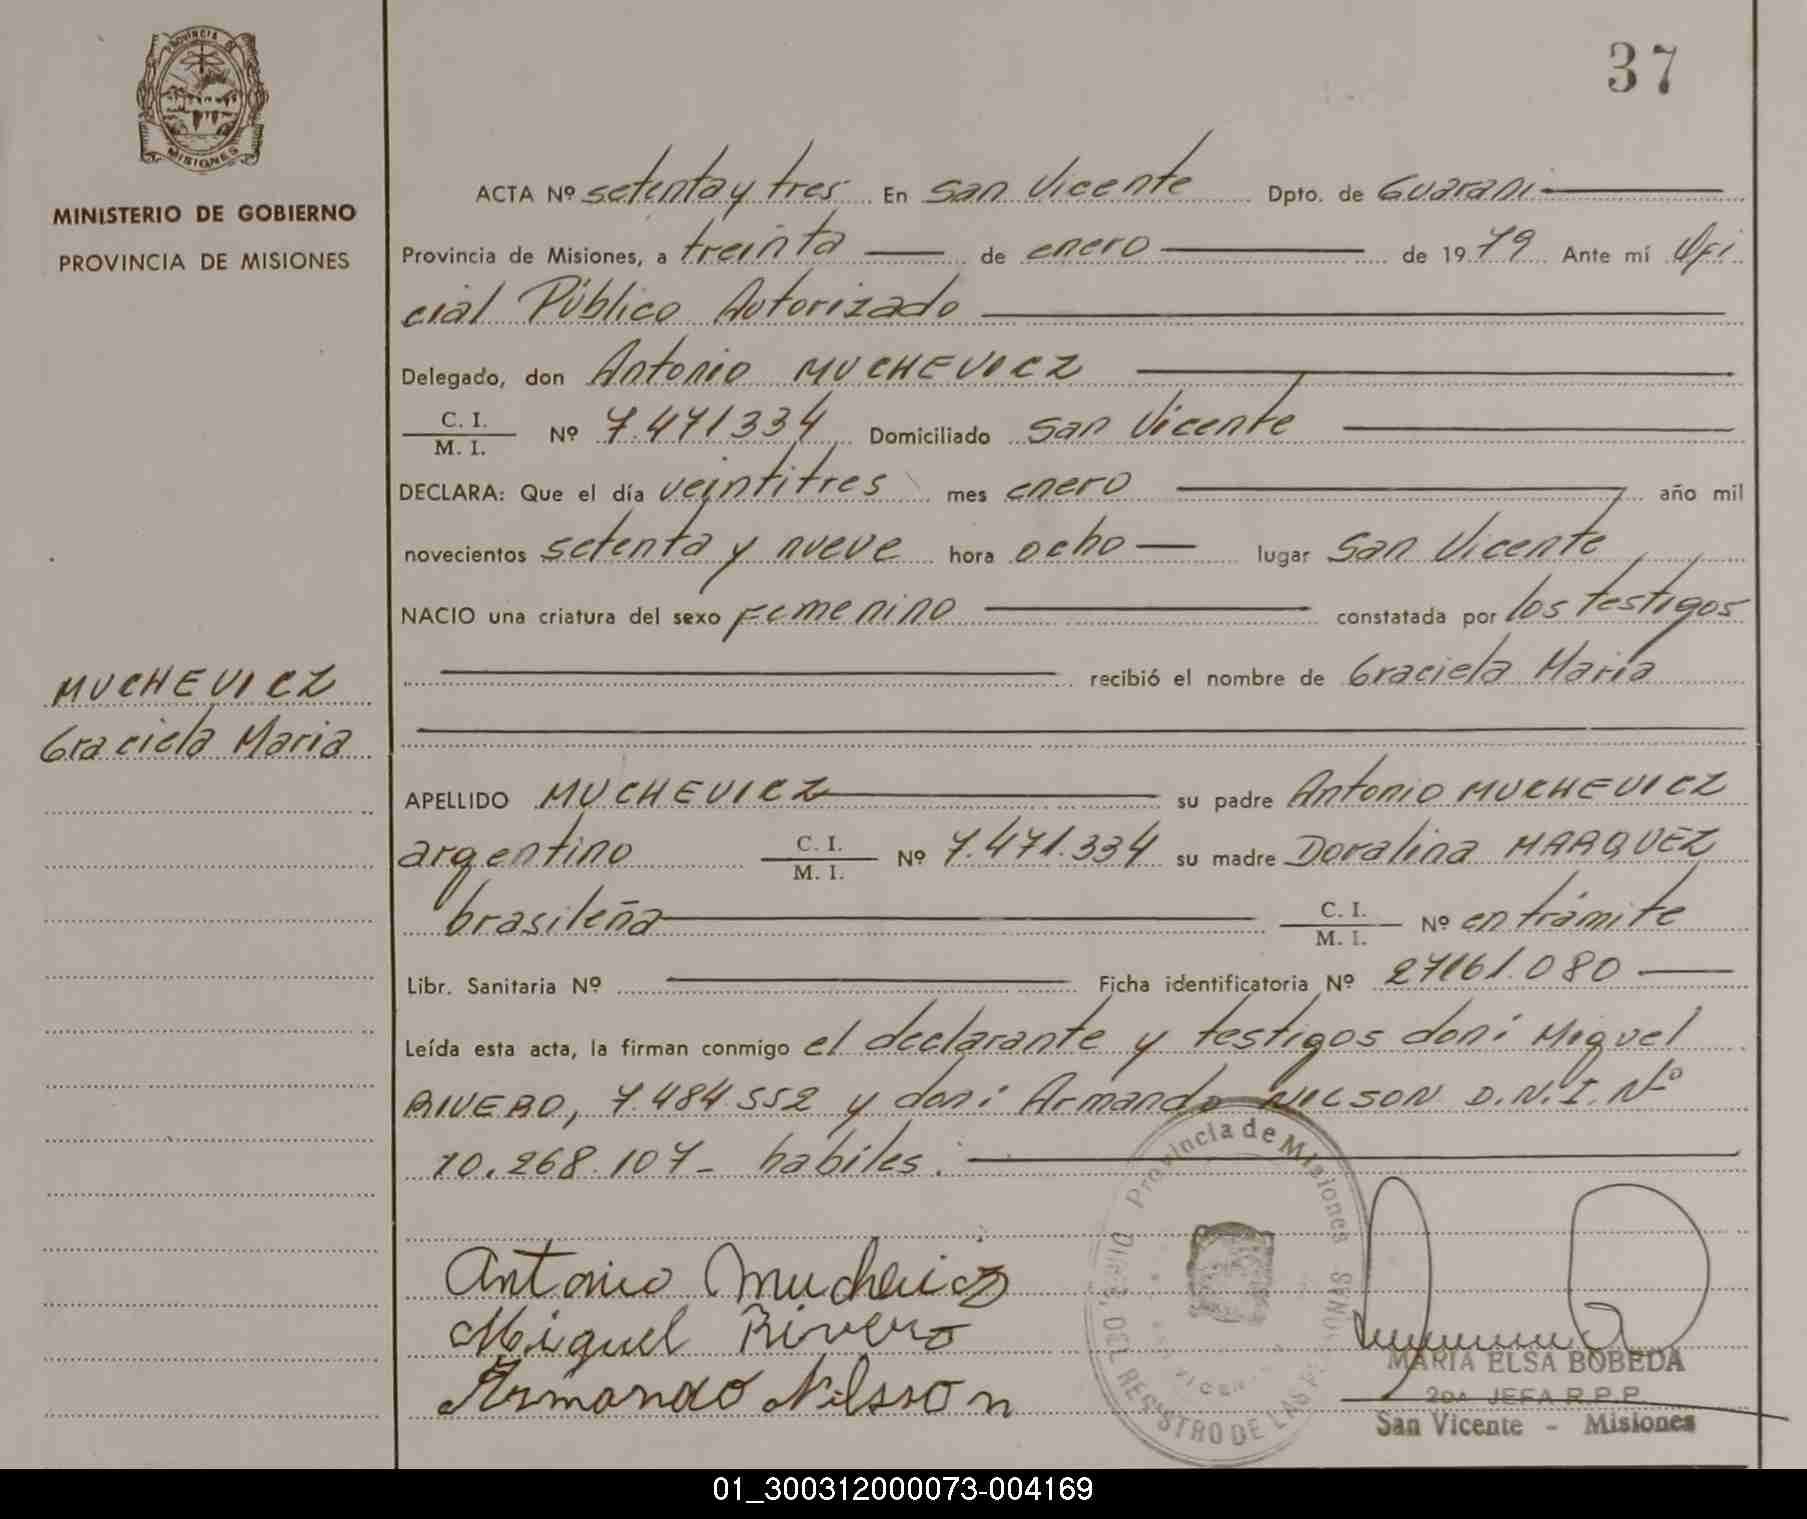 PROVINCIA DE
MISIONES
MINISTERIO DE GOBIERNO
PROVINCIA DE MISIONES
MUCHEVICZ
Graciela Maria
37
ACTA Nº setenta y tres En San Vicente Dpto. de Guarani
Provincia de Misiones, a treinta de enero de 1979 Ante mí Ofi
cial Público Autorizado
Delegado, don Antonio MUCHEVICZ
C. I.
M. I. Nº 7.471334 Domiciliado San Vicente
DECLARA: Que el día veintitres mes enero año mil
novecientos setenta y nueve hora ocho lugar San Vicente
NACIO una criatura del sexo Femenino constatada por los testigos
recibió el nombre de Graciela Maria
APELLIDO MUCHEVICZ su padre Antonio MUCHEVICZ
argentino C. I. M. I. Nº 7.471.334 su madre Doralina MARQUEZ
brasileña C. I. M. I. Nº en trámite
Libr. Sanitaria Nº Ficha identificatoria Nº 27161.080
Leída esta acta, la firman conmigo el declarante y testigos don: Miguel
RIVERO, 7.484.552 y don: Armando NILSON D.N.I. Nº
10.268.107- habiles.
Antonio Muchevicz
Miguel Rivero
Armando Nilsson
Provincia de Misiones
DIREC. DEL REGISTRO DE LAS
MARIA ELSA BOBEDA
2da JEFA R.P.P.
San Vicente - Misiones
01_300312000073-004169